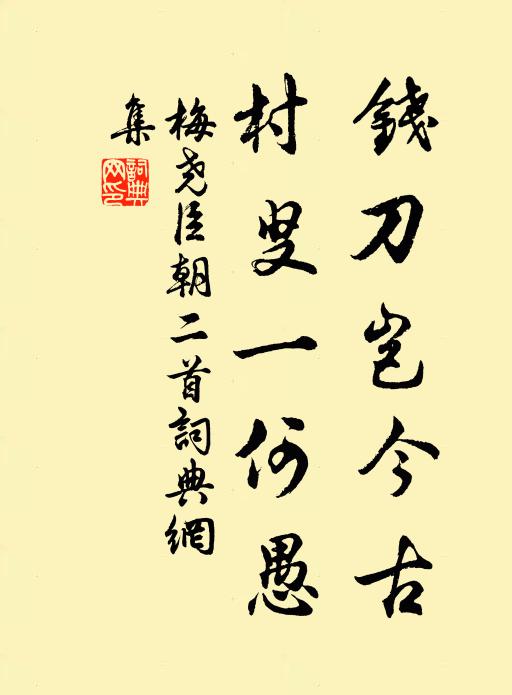 錢刀豈今古
村叟一何愚
梅尧臣朝二首詞典網
集
詞典網印